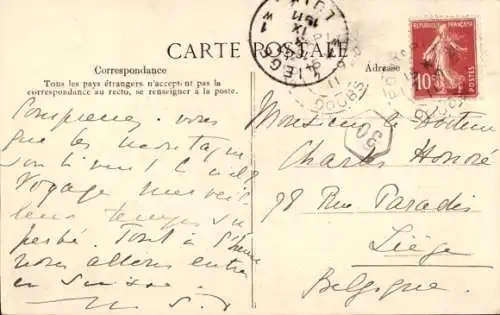 CARTE POSTALE
Correspondance
Tous les pays étrangers n'acceptent pas la
correspondance au recto, se renseigner à la poste.
Adresse
RÉPUBLIQUE FRANÇAISE
10
POSTES
LIÈGE
1911
DOUBS
30
Comprenez-vous
que les montagnes
Voyage merveil
leux temps su
perbe. Tout à l'heure
nous allons entrer
en Suisse.
Monsieur le Docteur
Charles Honoré
98 Rue Paradis
Liège
Belgique.